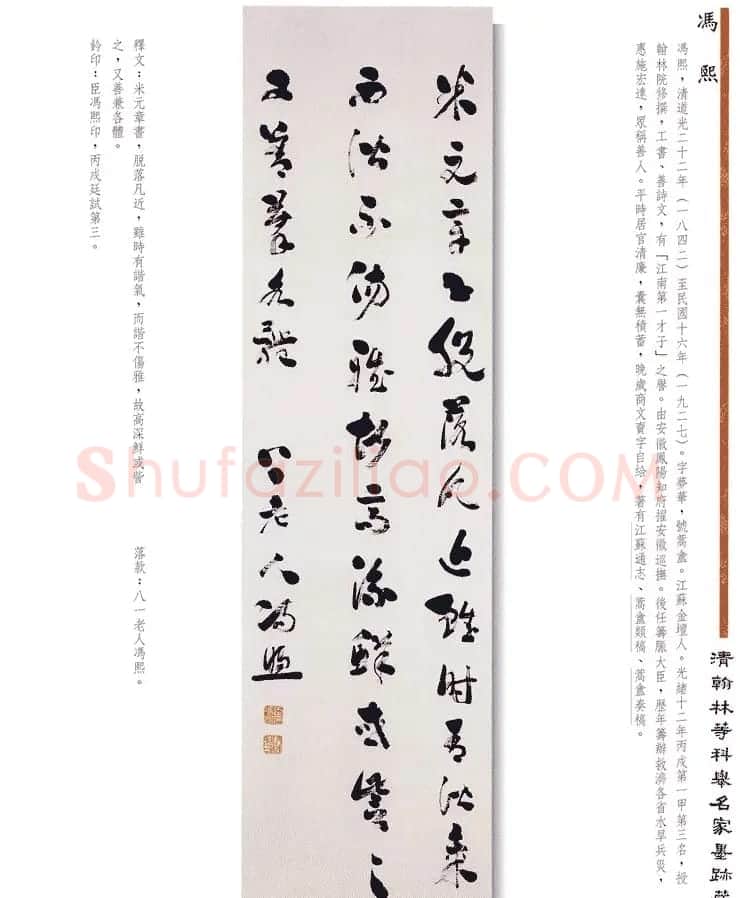 馮熙
馮熙，清道光二十二年（一八四二）至民國十六年（一九二七）。字夢華，號蒿盦。江蘇金壇人。光緒十二年丙戌第一甲第三名，授
翰林院修撰，工書、善詩文，有「江南第一才子」之譽。由安徽鳳陽知府擢安徽巡撫。後任籌賑大臣，歷年籌辦救濟各省水旱兵災，
惠施宏達，眾稱善人。平時居官清廉，囊無積蓄，晚歲商文賣字自給，著有江蘇通志、蒿盦類稿、蒿盦奏稿。
清翰林等科舉名家墨跡
米元章書脫落凡近雖時有諧氣
而諧不傷雅故高深鮮或訾之
又善兼各體 八一老人馮熙
釋文：米元章書，脱落凡近，雖時有諧氣，而諧不傷雅，故高深鮮或訾
之，又善兼各體。
落款：八一老人馮熙。
鈐印：臣馮熙印，丙戌廷試第三。
Shufaziliao.COM